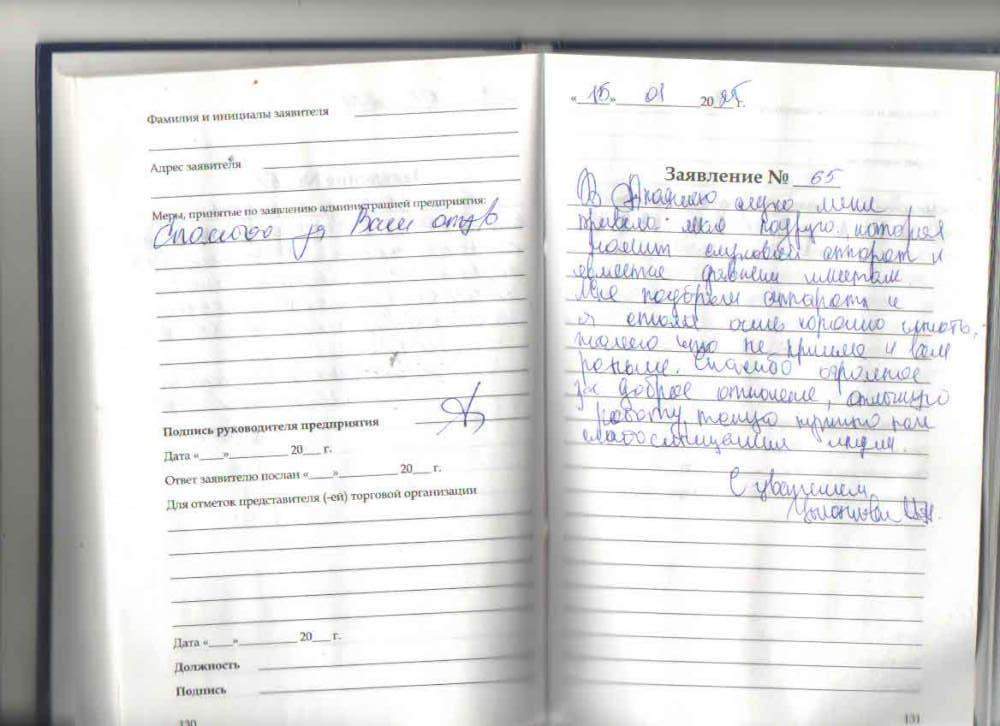 Фамилия и инициалы заявителя
Адрес заявителя
Меры, принятые по заявлению администрацией предприятия:
Спасибо за Ваш отзыв
Подпись руководителя предприятия
Дата «____»__________ 20___ г.
Ответ заявителю послан «____»__________ 20___ г.
Для отметок представителя (-ей) торговой организации
Дата «____»__________ 20___ г.
Должность
Подпись
130
«15» 01 2025г.
Заявление № 65
В Академию слуха меня
привела моя подруга которая
носит слуховой аппарат и
является давним клиентом.
Мне подобрали аппараты и
я стала очень хорошо слышать,
жалею что не пришла к вам
раньше. Спасибо огромное
за доброе отношение, отличную
работу, такую нужную нам
слабослышащим людям.
С уважением
131